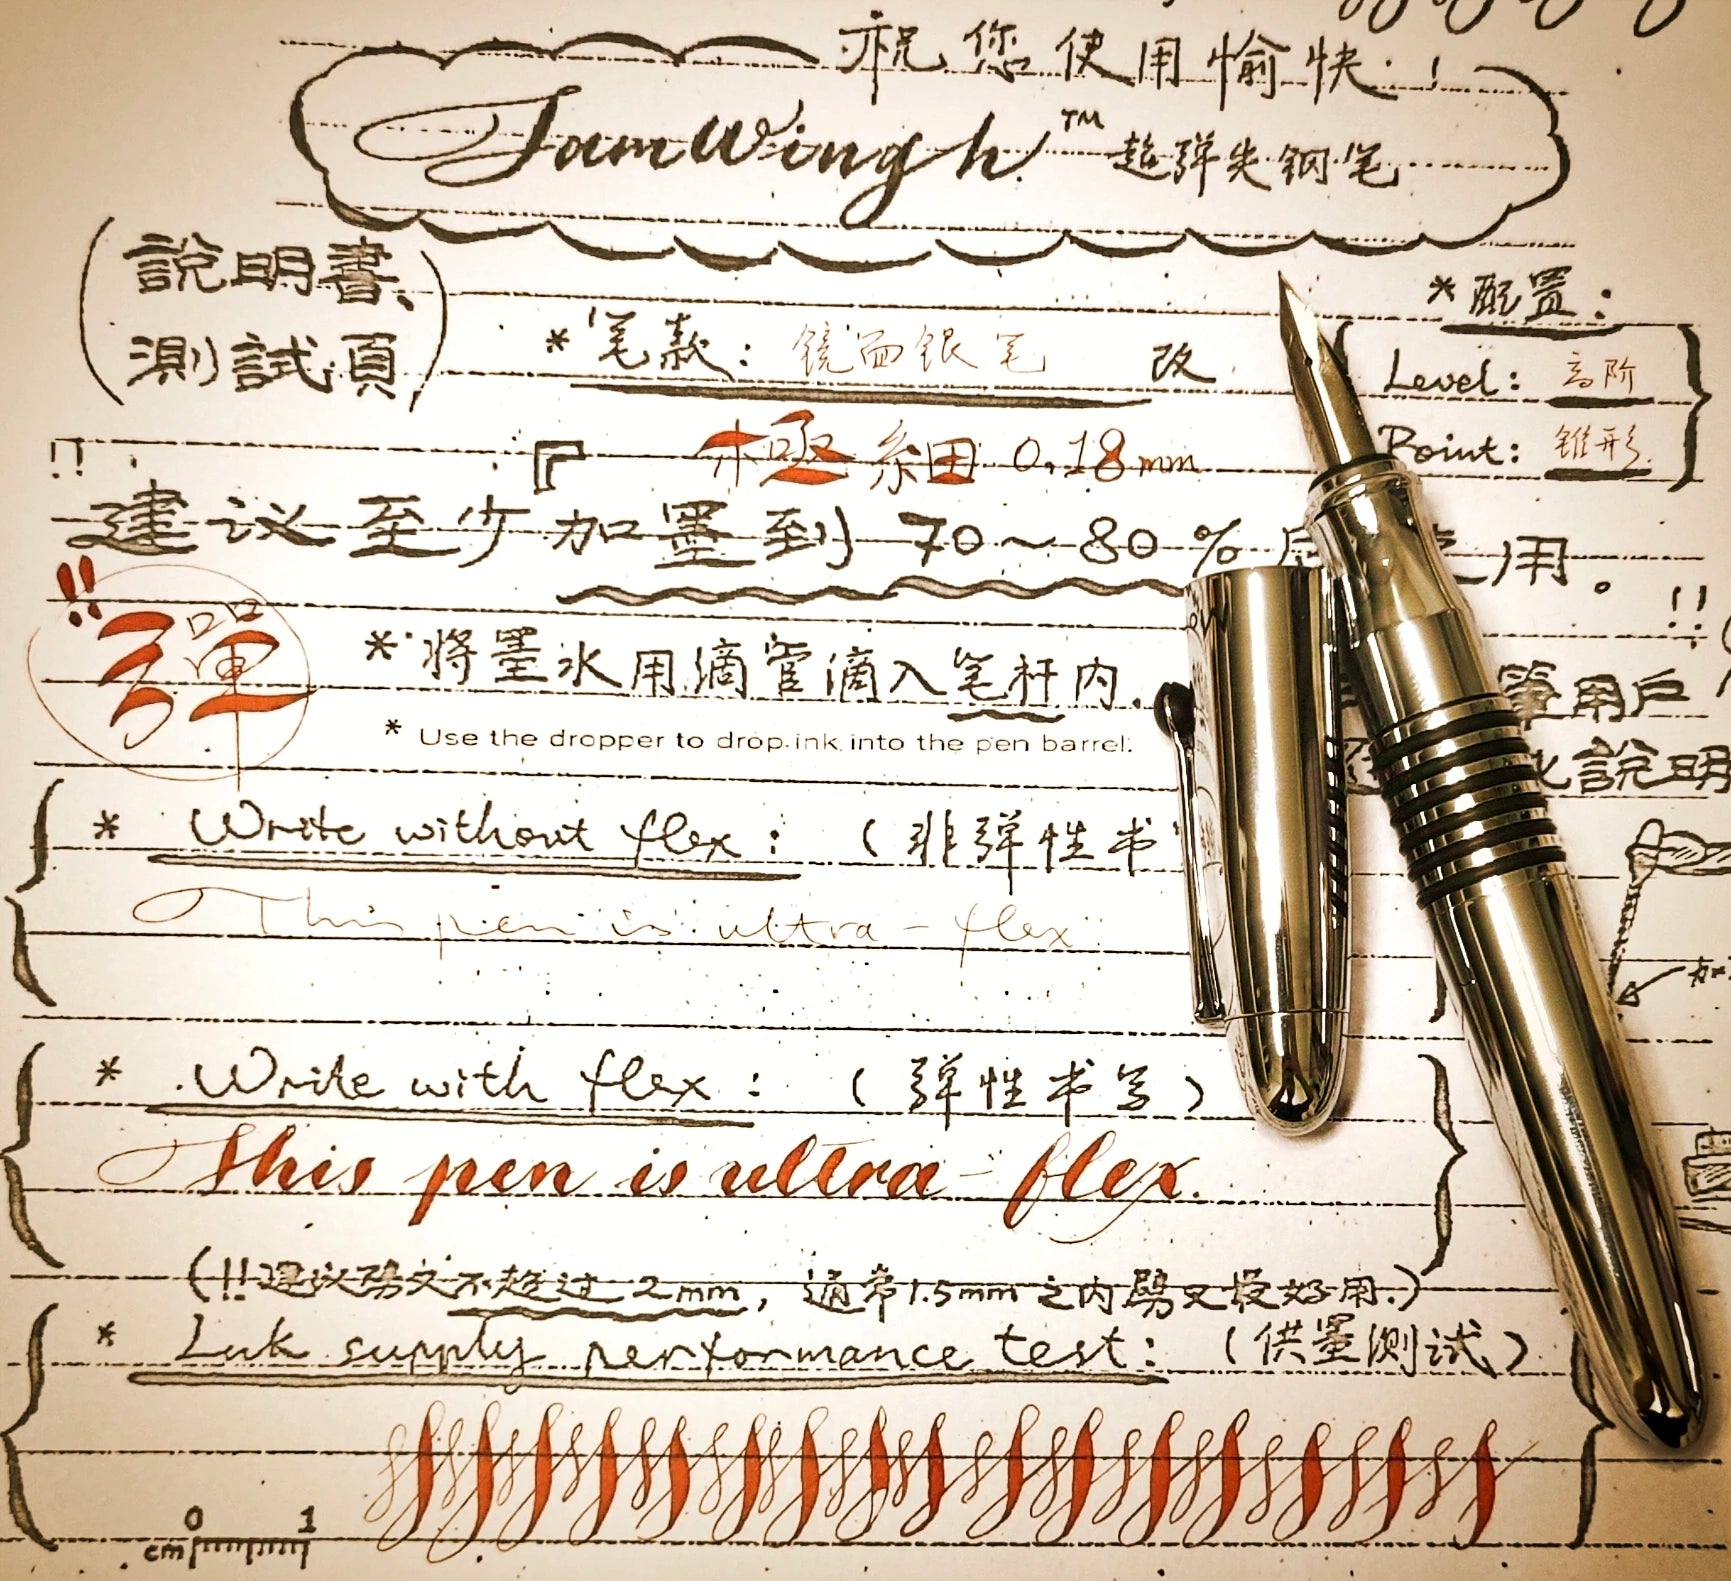 祝您使用愉快！
JamWingh™ 超弹尖钢笔
（說明書、
測試頁）
*配置：
*笔款：镜面银笔 改
Level：高阶
『 極細 0.18mm
Point：锥形
!! 建议至少加墨到 70～80% 使用。!!
!!彈
*将墨水用滴管滴入笔杆内.
筆用戶
* Use the dropper to drop ink into the pen barrel.
說明
* Write without flex：（非弹性书
This pen is ultra-flex
* Write with flex：（弹性书写）
This pen is ultra-flex.
（!!建议劈叉不超过2mm，通常1.5mm之内劈叉最好用.）
* Ink supply performance test：（供墨测试）
0 1
cm